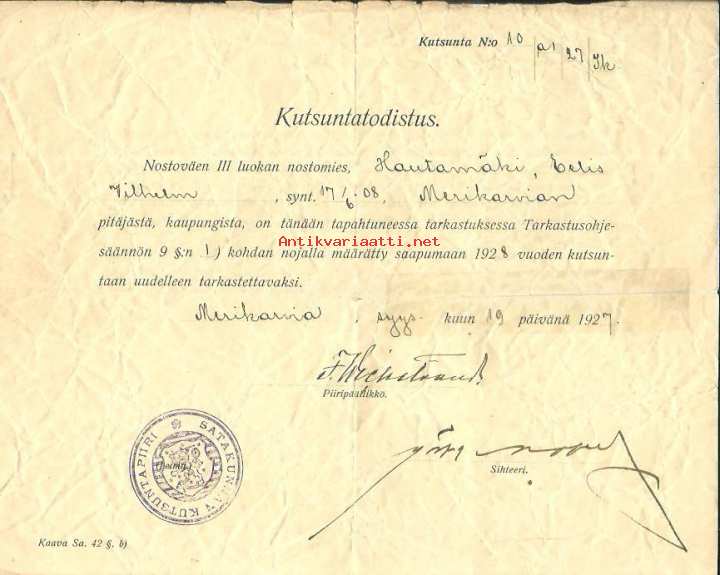 Kutsunta N:o 10 / 27 / Jk.
Kutsuntatodistus.
Nostoväen III luokan nostomies, Hautamäki, Eelis
Vilhelm , synt. 17/6 08, Merikarvian
pitäjästä, kaupungista, on tänään tapahtuneessa tarkastuksessa Tarkastusohje-
Antikvariaatti.net
säännön 9 §:n 1) kohdan nojalla määrätty saapumaan 1928 vuoden kutsun-
taan uudelleen tarkastettavaksi.
Merikarvia , syys- kuun 19 päivänä 1927.
Piiripäällikko.
Sihteeri.
SATAKUNNAN KUTSUNTAPIIRI
(leima.)
Kaava Sa. 42 §. b)